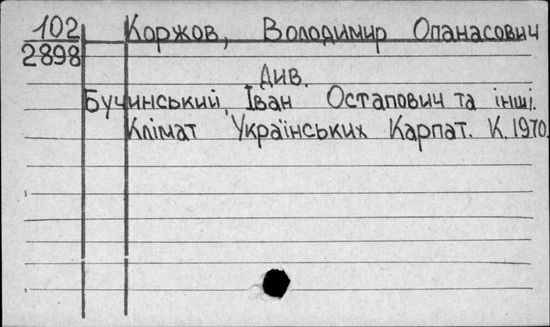 102 Коржов, Володимир Опанасович
2898
Див.
Бучинський, Іван Остапович та інші.
Клімат Українських Карпат. К. 1970.